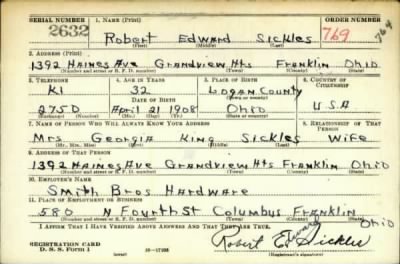 SERIAL NUMBER 1. NAME (Print) ORDER NUMBER
2632 Robert Edward Sickles 769 764
(First) (Middle) (Last)
2. ADDRESS (Print)
1392 Haines Ave Grandview Hts Franklin Ohio
(Number and street or R. F. D. number) (Town) (County) (State)
3. TELEPHONE 4. AGE IN YEARS 5. PLACE OF BIRTH 6. COUNTRY OF CITIZENSHIP
KI 32 Logan County
DATE OF BIRTH (Town or county) USA
275D April 21 1908 Ohio
(Exchange) (Number) (Mo.) (Day) (Yr.) (State or country)
7. NAME OF PERSON WHO WILL ALWAYS KNOW YOUR ADDRESS 8. RELATIONSHIP OF THAT PERSON
Mrs Georgia King Sickles Wife
(Mr., Mrs., Miss) (First) (Middle) (Last)
9. ADDRESS OF THAT PERSON
1392 Haines Ave Grandview Hts Franklin Ohio
(Number and street or R. F. D. number) (Town) (County) (State)
10. EMPLOYER'S NAME
Smith Bros Hardware
11. PLACE OF EMPLOYMENT OR BUSINESS
580 N Fourth St Columbus Franklin Ohio
(Number and street or R. F. D. number) (Town) (County) (State)
I AFFIRM THAT I HAVE VERIFIED ABOVE ANSWERS AND THAT THEY ARE TRUE.
REGISTRATION CARD
D. S. S. Form 1
Robert Edward Sickles
(Registrant's signature)